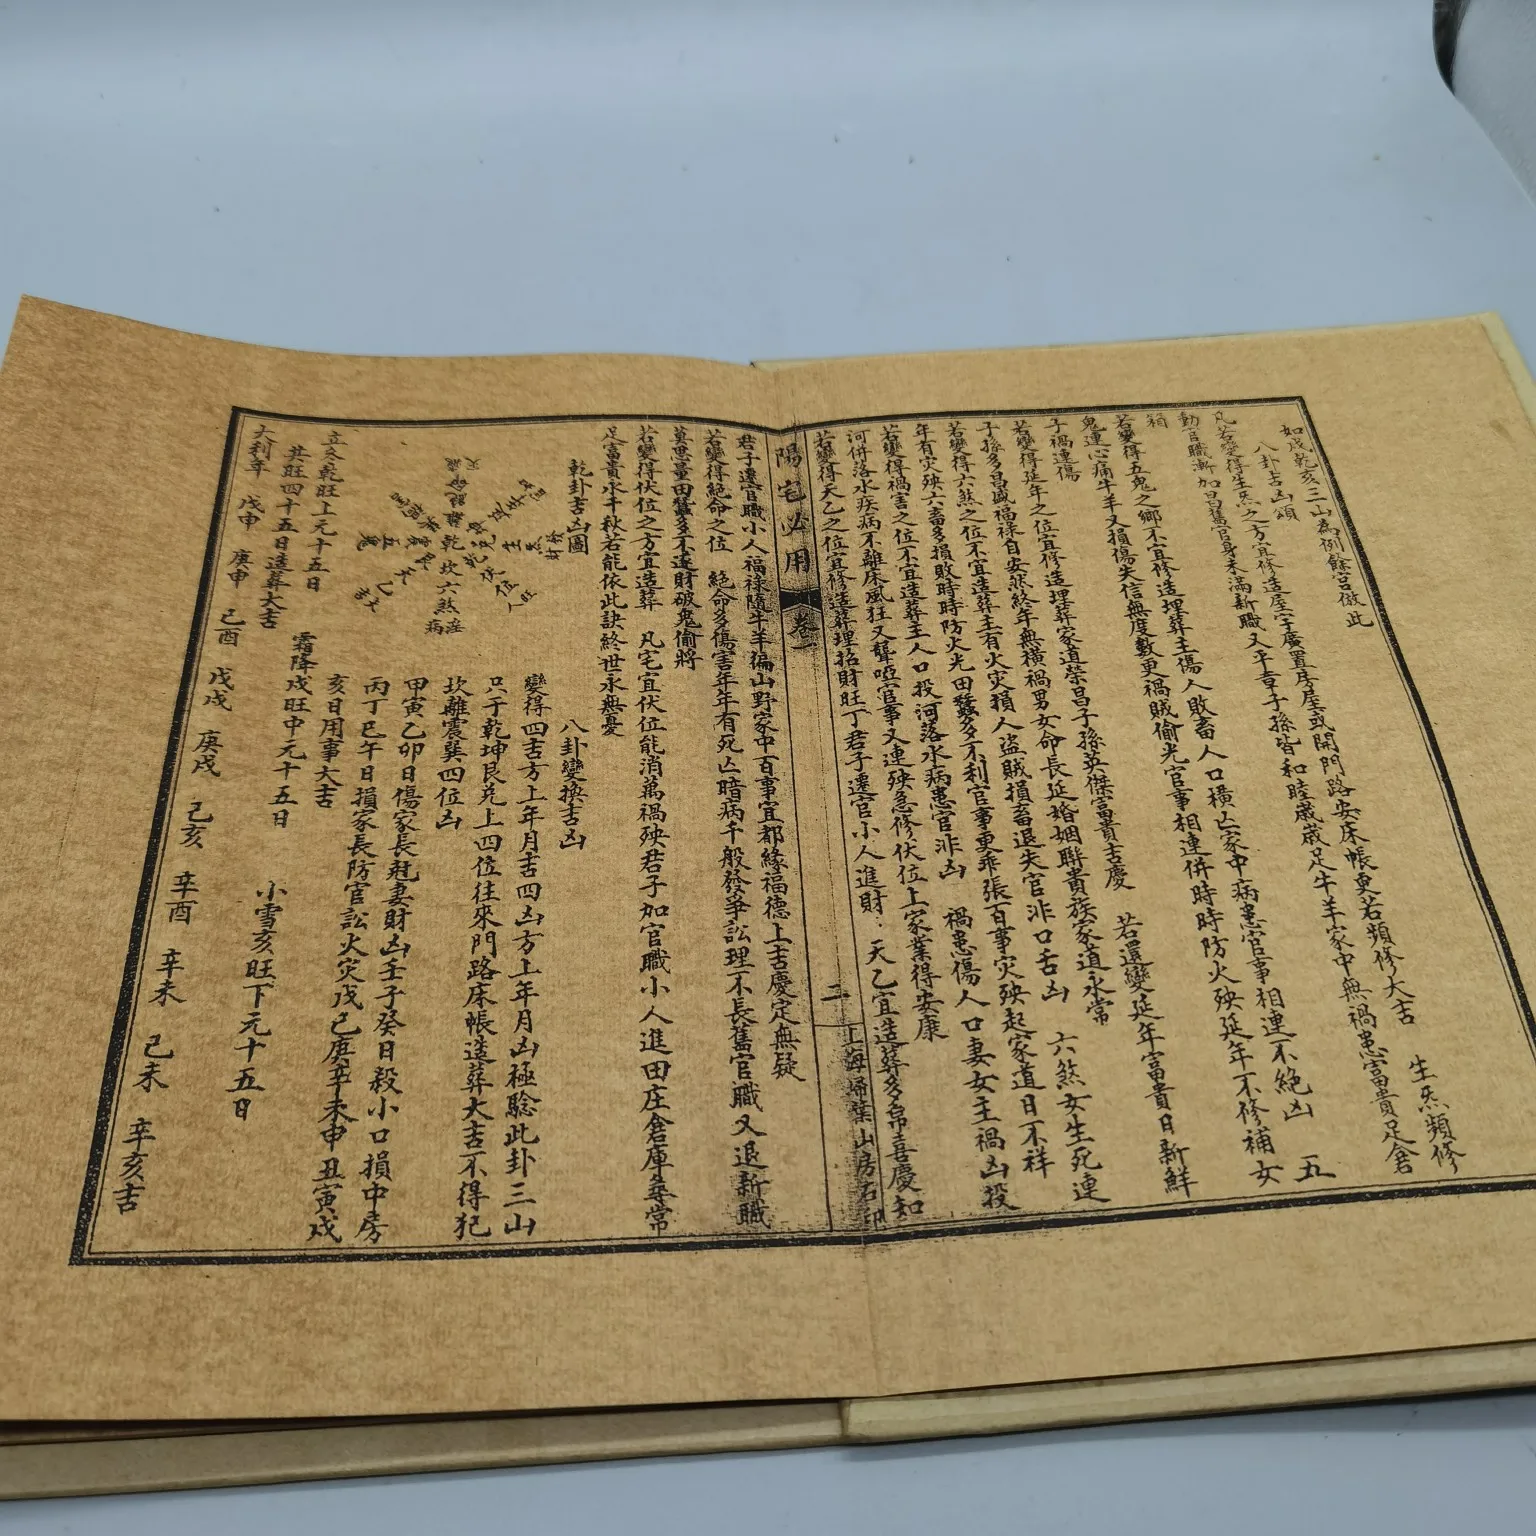 如戌乾亥三山為例餘宮倣此
八卦吉凶頌
生炁頻修
凡若變得生炁之方宜修造屋宇廣置房屋或開門路安床帳更若頻修大吉
動官職漸加昌舊官身未滿新職又平章子孫皆和睦歲歲足牛羊家中無禍患富貴足倉
箱
五
若變得五鬼之鄉不宜修造埋葬主傷人敗畜人口橫亡家中病患官事相連不絕凶
鬼連心痛牛羊又損傷失信無度數更禍賊偷光官事相連併時時防火殃延年不修補女
子禍連傷
若變得延年之位宜修造埋葬家道榮昌子孫英傑富貴吉慶 若還變延年富貴日新鮮
子孫多昌盛福祿自安然終年無橫禍男女命長延婚姻聯貴族家道永常
若變得六煞之位不宜造葬主有火灾損人盜賊損畜退失官非口舌凶 六煞女生死連
年有灾殃六畜多損敗時時防火光田蠶多不利官事更乖張百事灾殃起家道日不祥
若變得禍害之位不宜造葬主人口投河落水病患官非凶 禍患傷人口妻女主禍凶投
河併落水疾病不離床風狂又聾啞官事又連殃急修伏位上家業得安康
若變得天乙之位宜修造葬埋招財旺丁君子遷官小人進財 天乙宜造葬多帛喜慶知
陽宅必用 卷一 二 上海掃葉山房石印
君子遷官職小人福祿隨牛羊徧山野家中百事宜都緣福德上吉慶定無疑
若變得絕命之位 絕命多傷害年年有死亡暗病千般發爭訟理不長舊官職又退新職
莫思量田蠶多不遂財破鬼偷將
若變得伏位之方宜造葬 凡宅宜伏位能消萬禍殃君子加官職小人進田庄倉庫尋常
足富貴永千秋若能依此訣終世永無憂
乾卦吉凶圖
八卦變換吉凶
變得四吉方上年月吉四凶方上年月凶極驗此卦三山
只于乾坤艮兌上四位往來門路床帳造葬大吉不得犯
坎離震巽四位凶
甲寅乙卯日傷家長尅妻財凶壬子癸日殺小口損中房
丙丁巳午日損家長防官訟火灾戊己庚辛未申丑寅戌
亥日用事大吉
立冬乾旺上元十五日 霜降戌旺中元十五日 小雪亥旺下元十五日
共旺四十五日造葬大吉
大利年 戊申 庚申 己酉 戊戌 庚戌 己亥 辛酉 辛未 己未 辛亥吉